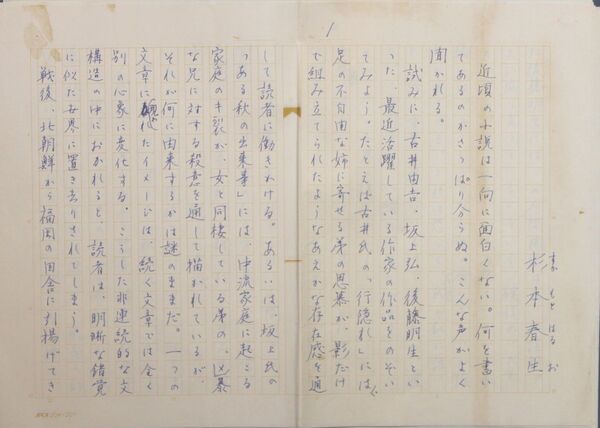 1
杉本春生
すぎもとはるお
近頃の小説は一向に面白くない。何を書い
てあるのかさっぱり分らぬ。こんな声がよく
聞かれる。
試みに、古井由吉、坂上弘、後藤明生とい
った、最近活躍している作家の作品をのぞい
てみよう。たとえば古井氏の「行隠れ」には、
足の不自由な姉に寄せる弟の思慕が、影だけ
で組み立てられたようなあえかな存在感を通
して読者に働きかける。あるいは、坂上氏の
「ある秋の出来事」には、中流家庭に起こる
家庭のキ裂が、女と同棲している弟の、凶暴
な兄に対する殺意を通して描かれているが、
それが何に由来するかは謎のままだ。一つの
文章に現れたイメージは、続く文章では全く
別の心象に変化する。こうした非連続的な文
構造の中におかれると、読者は、明晰な錯覚
に似た世界に置き去りされてしまう。
戦後、北朝鮮から福岡の田舎に引揚げてき